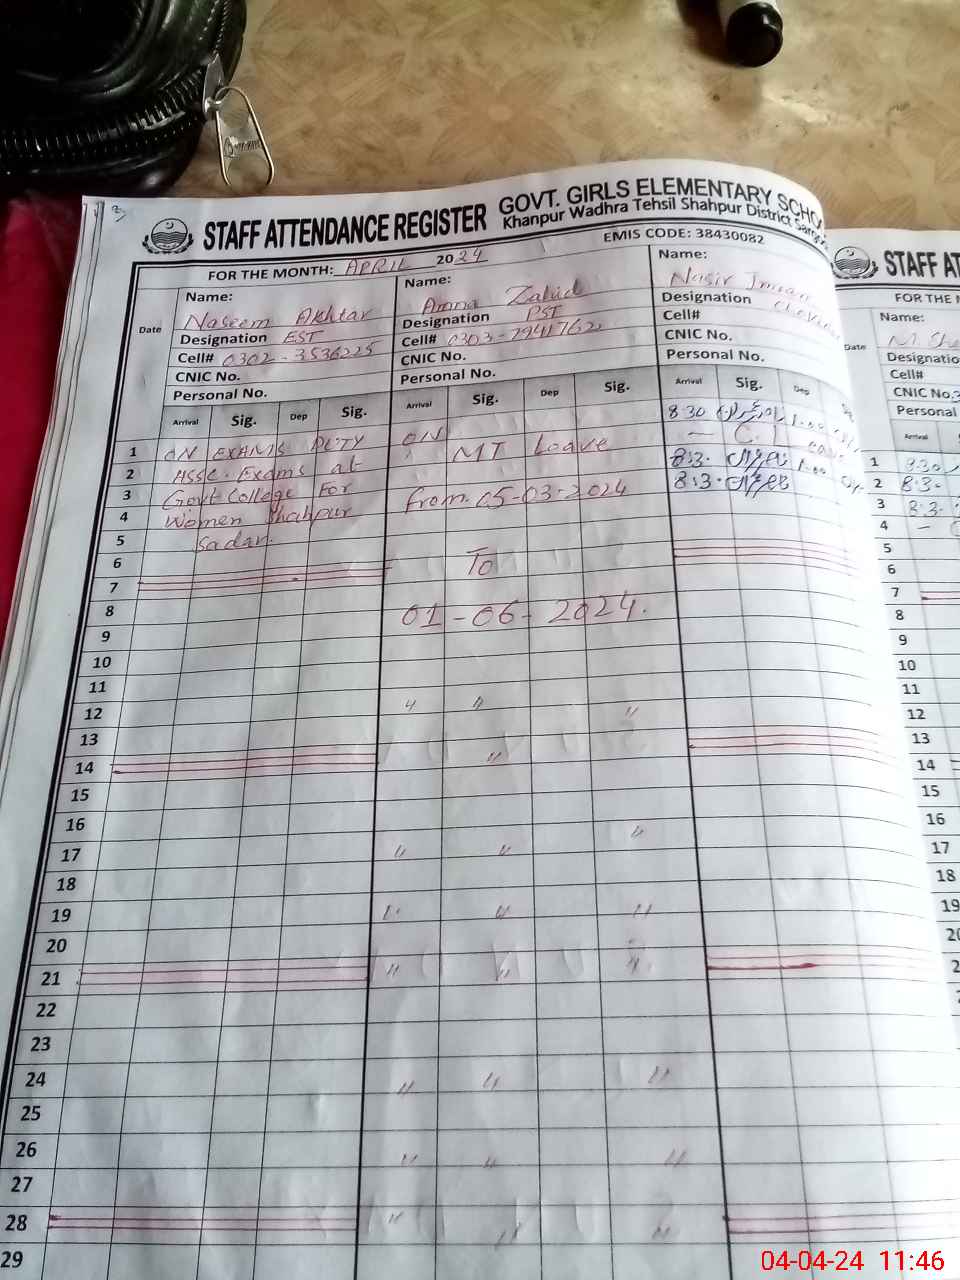 STAFF ATTENDANCE REGISTER
GOVT. GIRLS ELEMENTARY SCHO
Khanpur Wadhra Tehsil Shahpur District Sargo
EMIS CODE: 38430082
FOR THE MONTH: APRIL 2024
Date
Name:
Naseem Akhtar
Designation EST
Cell# 0302-3536225
CNIC No.
Personal No.
Arrival Sig. Dep Sig.
Name:
Amna Zahid
Designation PST
Cell# 0303-7941762
CNIC No.
Personal No.
Arrival Sig. Dep Sig.
Name:
Nasir Imran
Designation
Cell#
CNIC No.
Personal No.
Arrival Sig. Dep
ON EXAMS DUTY
Assc. Exams at
Govt College For
Women Shahpur
Sadar.
ON MT Leave
From. 05-03-2024
To
01-06-2024.
8:30 1:00
— C.
8:3. 1:00
8:3.
1
2
3
4
5
6
7
8
9
10
11
12
13
14
15
16
17
18
19
20
21
22
23
24
25
26
27
28
29
STAFF AT
FOR THE
Name:
Date
Designatio
Cell#
CNIC No.
Personal
Arrival
1 8:30
2 8:3.
3 8:3.
4 –
5
6
7
8
9
10
11
12
13
14
15
16
17
18
19
04-04-24 11:46